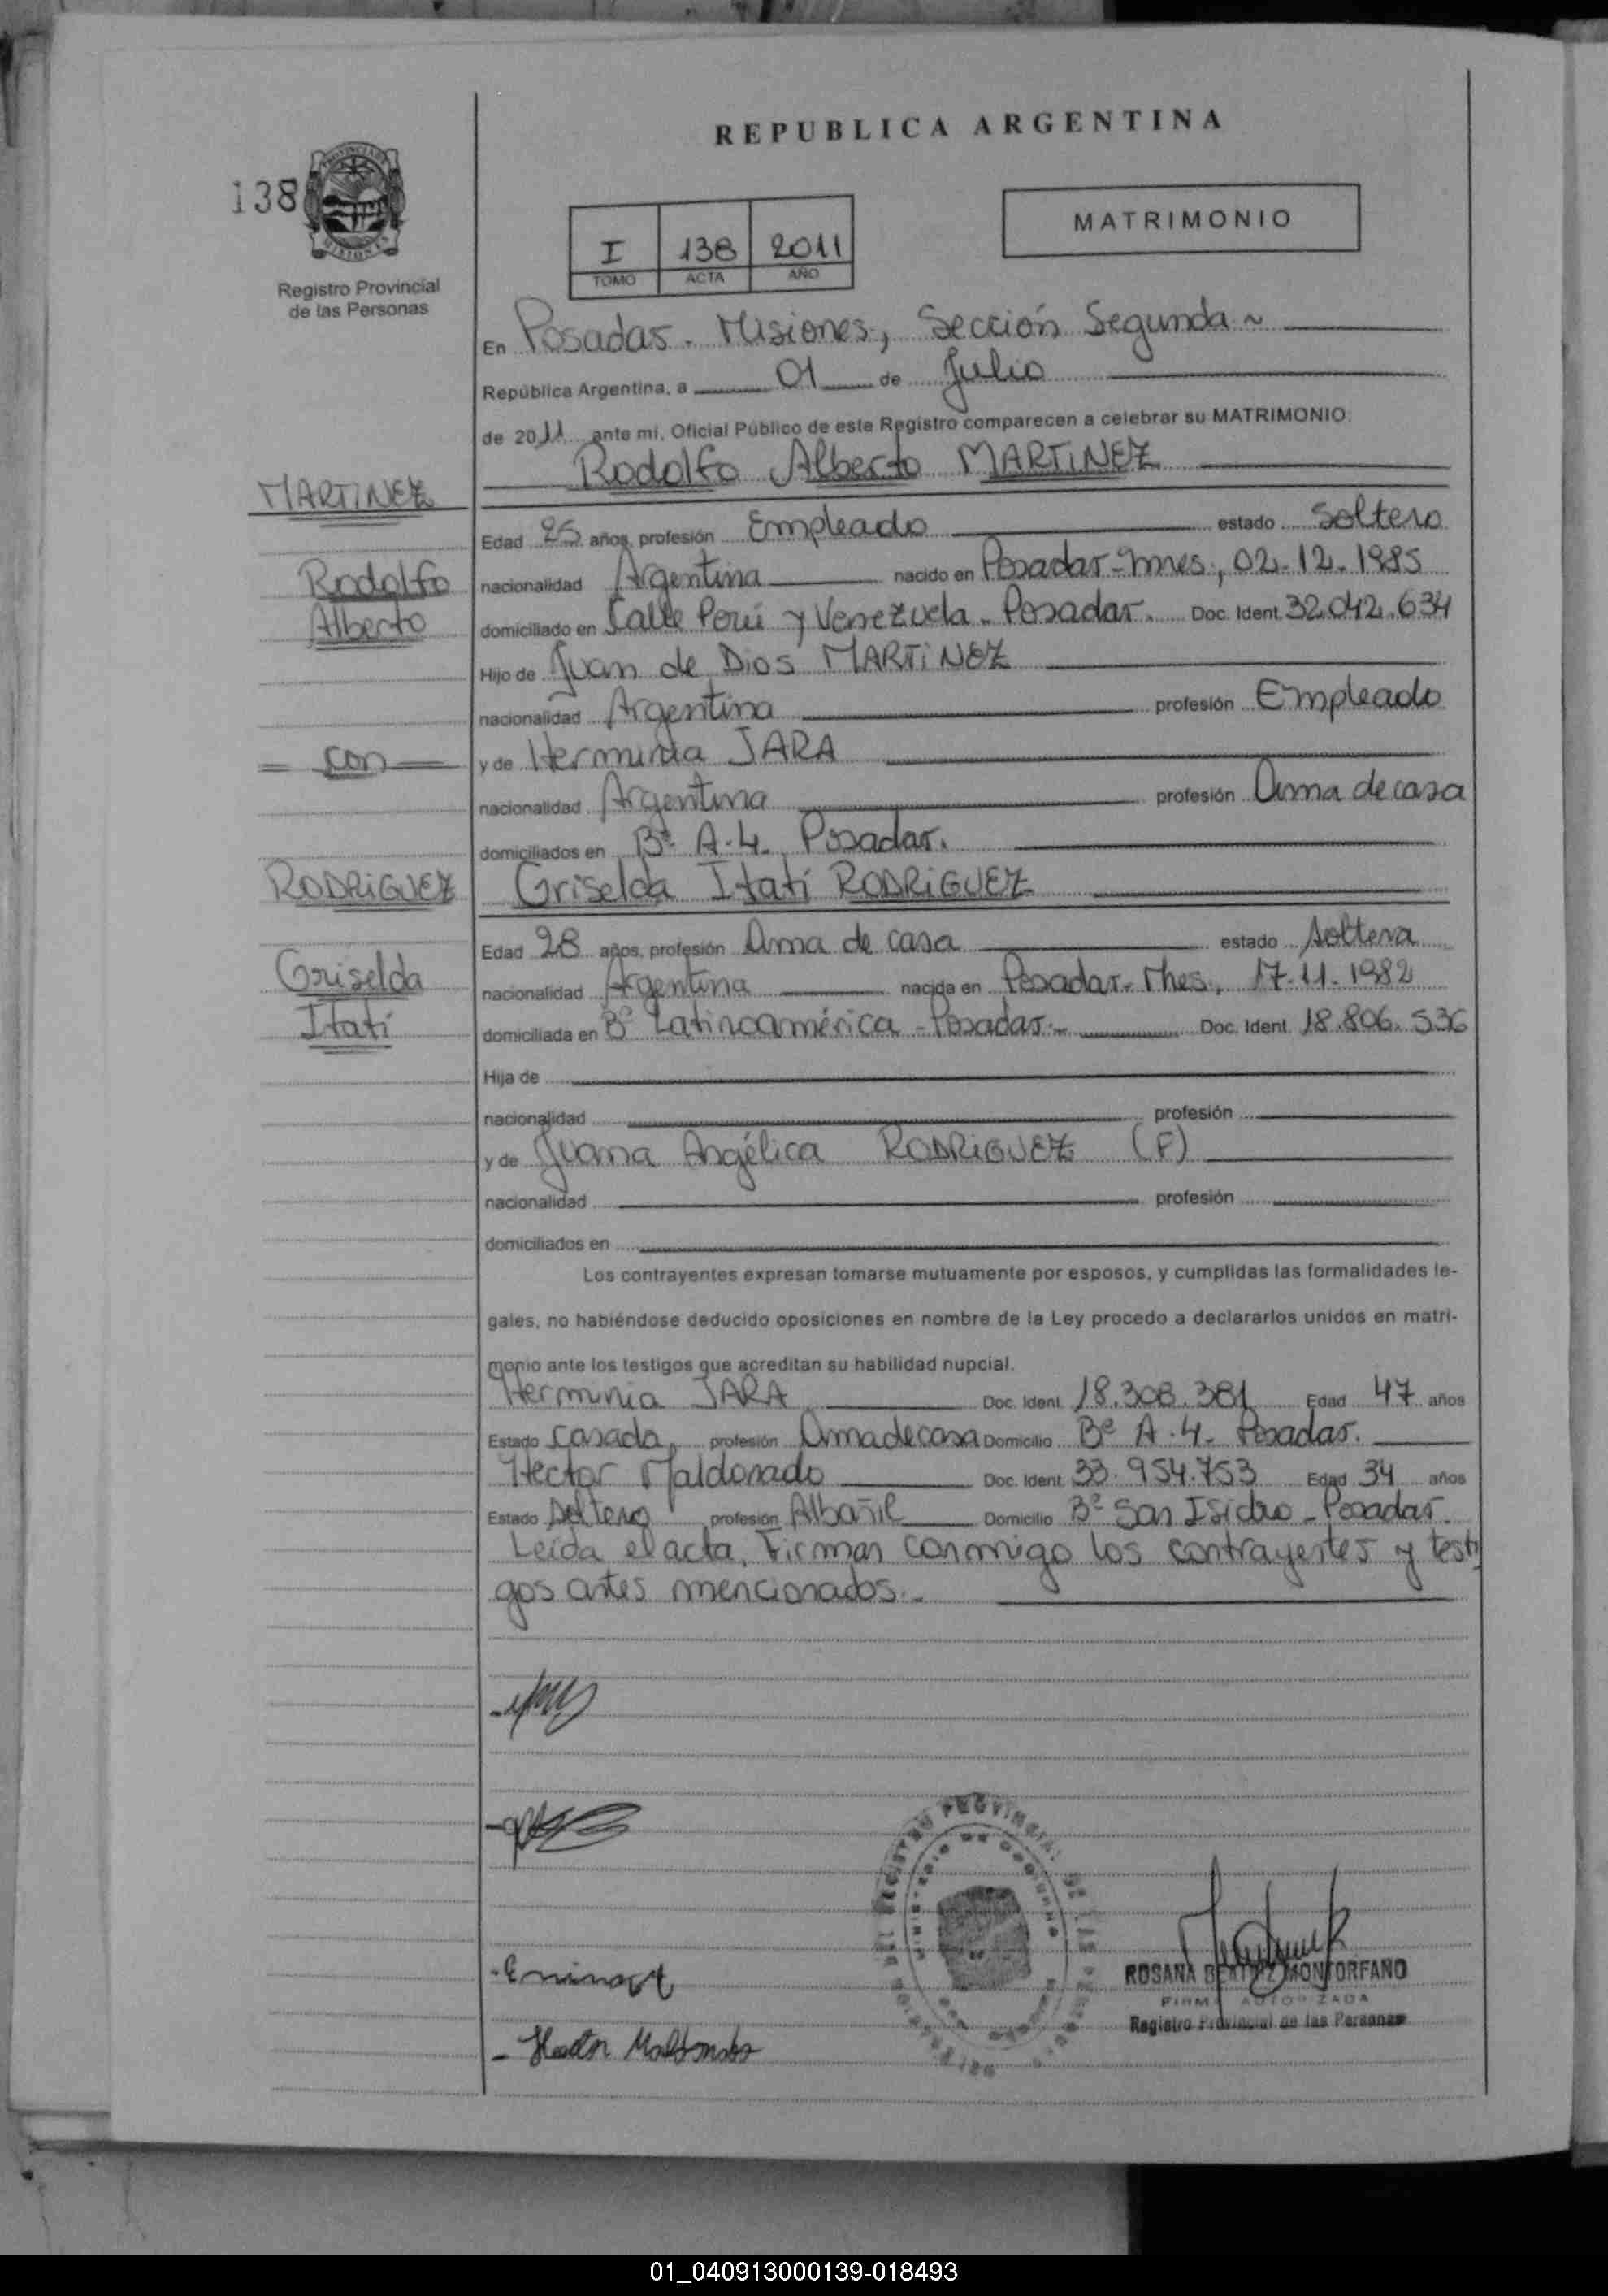 REPUBLICA ARGENTINA
138
MATRIMONIO
I 138 2011
TOMO ACTA AÑO
Registro Provincial
de las Personas
En Posadas. Misiones, Sección Segunda ~
República Argentina, a 01 de Julio
de 2011 ante mi, Oficial Público de este Registro comparecen a celebrar su MATRIMONIO:
Rodolfo Alberto MARTINEZ
MARTINEZ
Edad 25 años, profesión Empleado estado Soltero
Rodolfo
nacionalidad Argentina nacido en Posadas-Mnes, 02.12.1985
Alberto
domiciliado en Calle Perú y Venezuela. Posadas. Doc. Ident. 32.042.634
Hijo de Juan de Dios MARTINEZ
nacionalidad Argentina profesión Empleado
= con =
y de Herminia JARA
nacionalidad Argentina profesión Ama de casa
domiciliados en Bº A.4. Posadas.
RODRIGUEZ
Griselda Itatí RODRIGUEZ
Edad 28 años, profesión Ama de casa estado soltera
Griselda
nacionalidad Argentina nacida en Posadas. Mnes, 17.11.1982
Itatí
domiciliada en Bº Latinoamérica - Posadas. Doc. Ident. 18.806.536
Hija de
nacionalidad profesión
y de Juana Angélica RODRIGUEZ (F)
nacionalidad profesión
domiciliados en
Los contrayentes expresan tomarse mutuamente por esposos, y cumplidas las formalidades le-
gales, no habiéndose deducido oposiciones en nombre de la Ley procedo a declararlos unidos en matri-
monio ante los testigos que acreditan su habilidad nupcial.
Herminia JARA Doc. Ident. 18.308.381 Edad 47 años
Estado Casada, profesión Ama de casa Domicilio Bº A.4. Posadas.
Hector Maldonado Doc. Ident. 33.954.753 Edad 34 años
Estado Soltero profesión Albañil Domicilio Bº San Isidro - Posadas.
Leída el acta, Firman conmigo los contrayentes y testi
gos antes mencionados.
ROSANA BEATRIZ MONTORFANO
FIRMA AUTORIZADA
Registro Provincial de las Personas
- Hector Maldonado
01_040913000139-018493